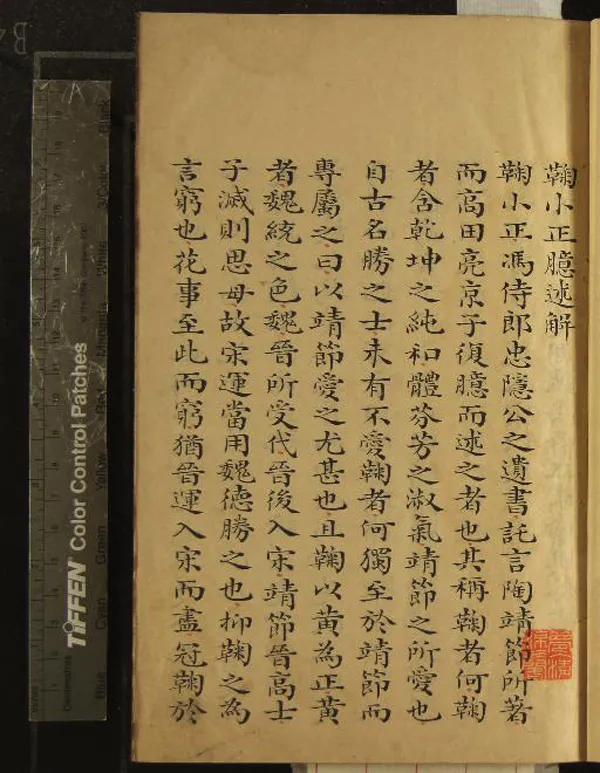 鞠小正臆述解
鞠小正馮侍郎忠隱公之遺書託言陶靖節所著
而高田亮京子復臆而述之者也其稱鞠者何鞠
者含乾坤之純和體芬芳之淑氣靖節之所愛也
自古名勝之士未有不愛鞠者何獨至於靖節而
專屬之曰以靖節愛之尤甚也且鞠以黃為正黃
者魏統之色魏晉所受代晉後入宋靖節晉高士
子滅則思母故宋運當用魏德勝之也抑鞠之為
言窮也花事至此而窮猶晉運入宋而盡冠鞠於
TIFFEN Color Control Patches
Centimetres
Blue
Cyan
Green
Yellow
Red
Magenta
White
3/Color
Black